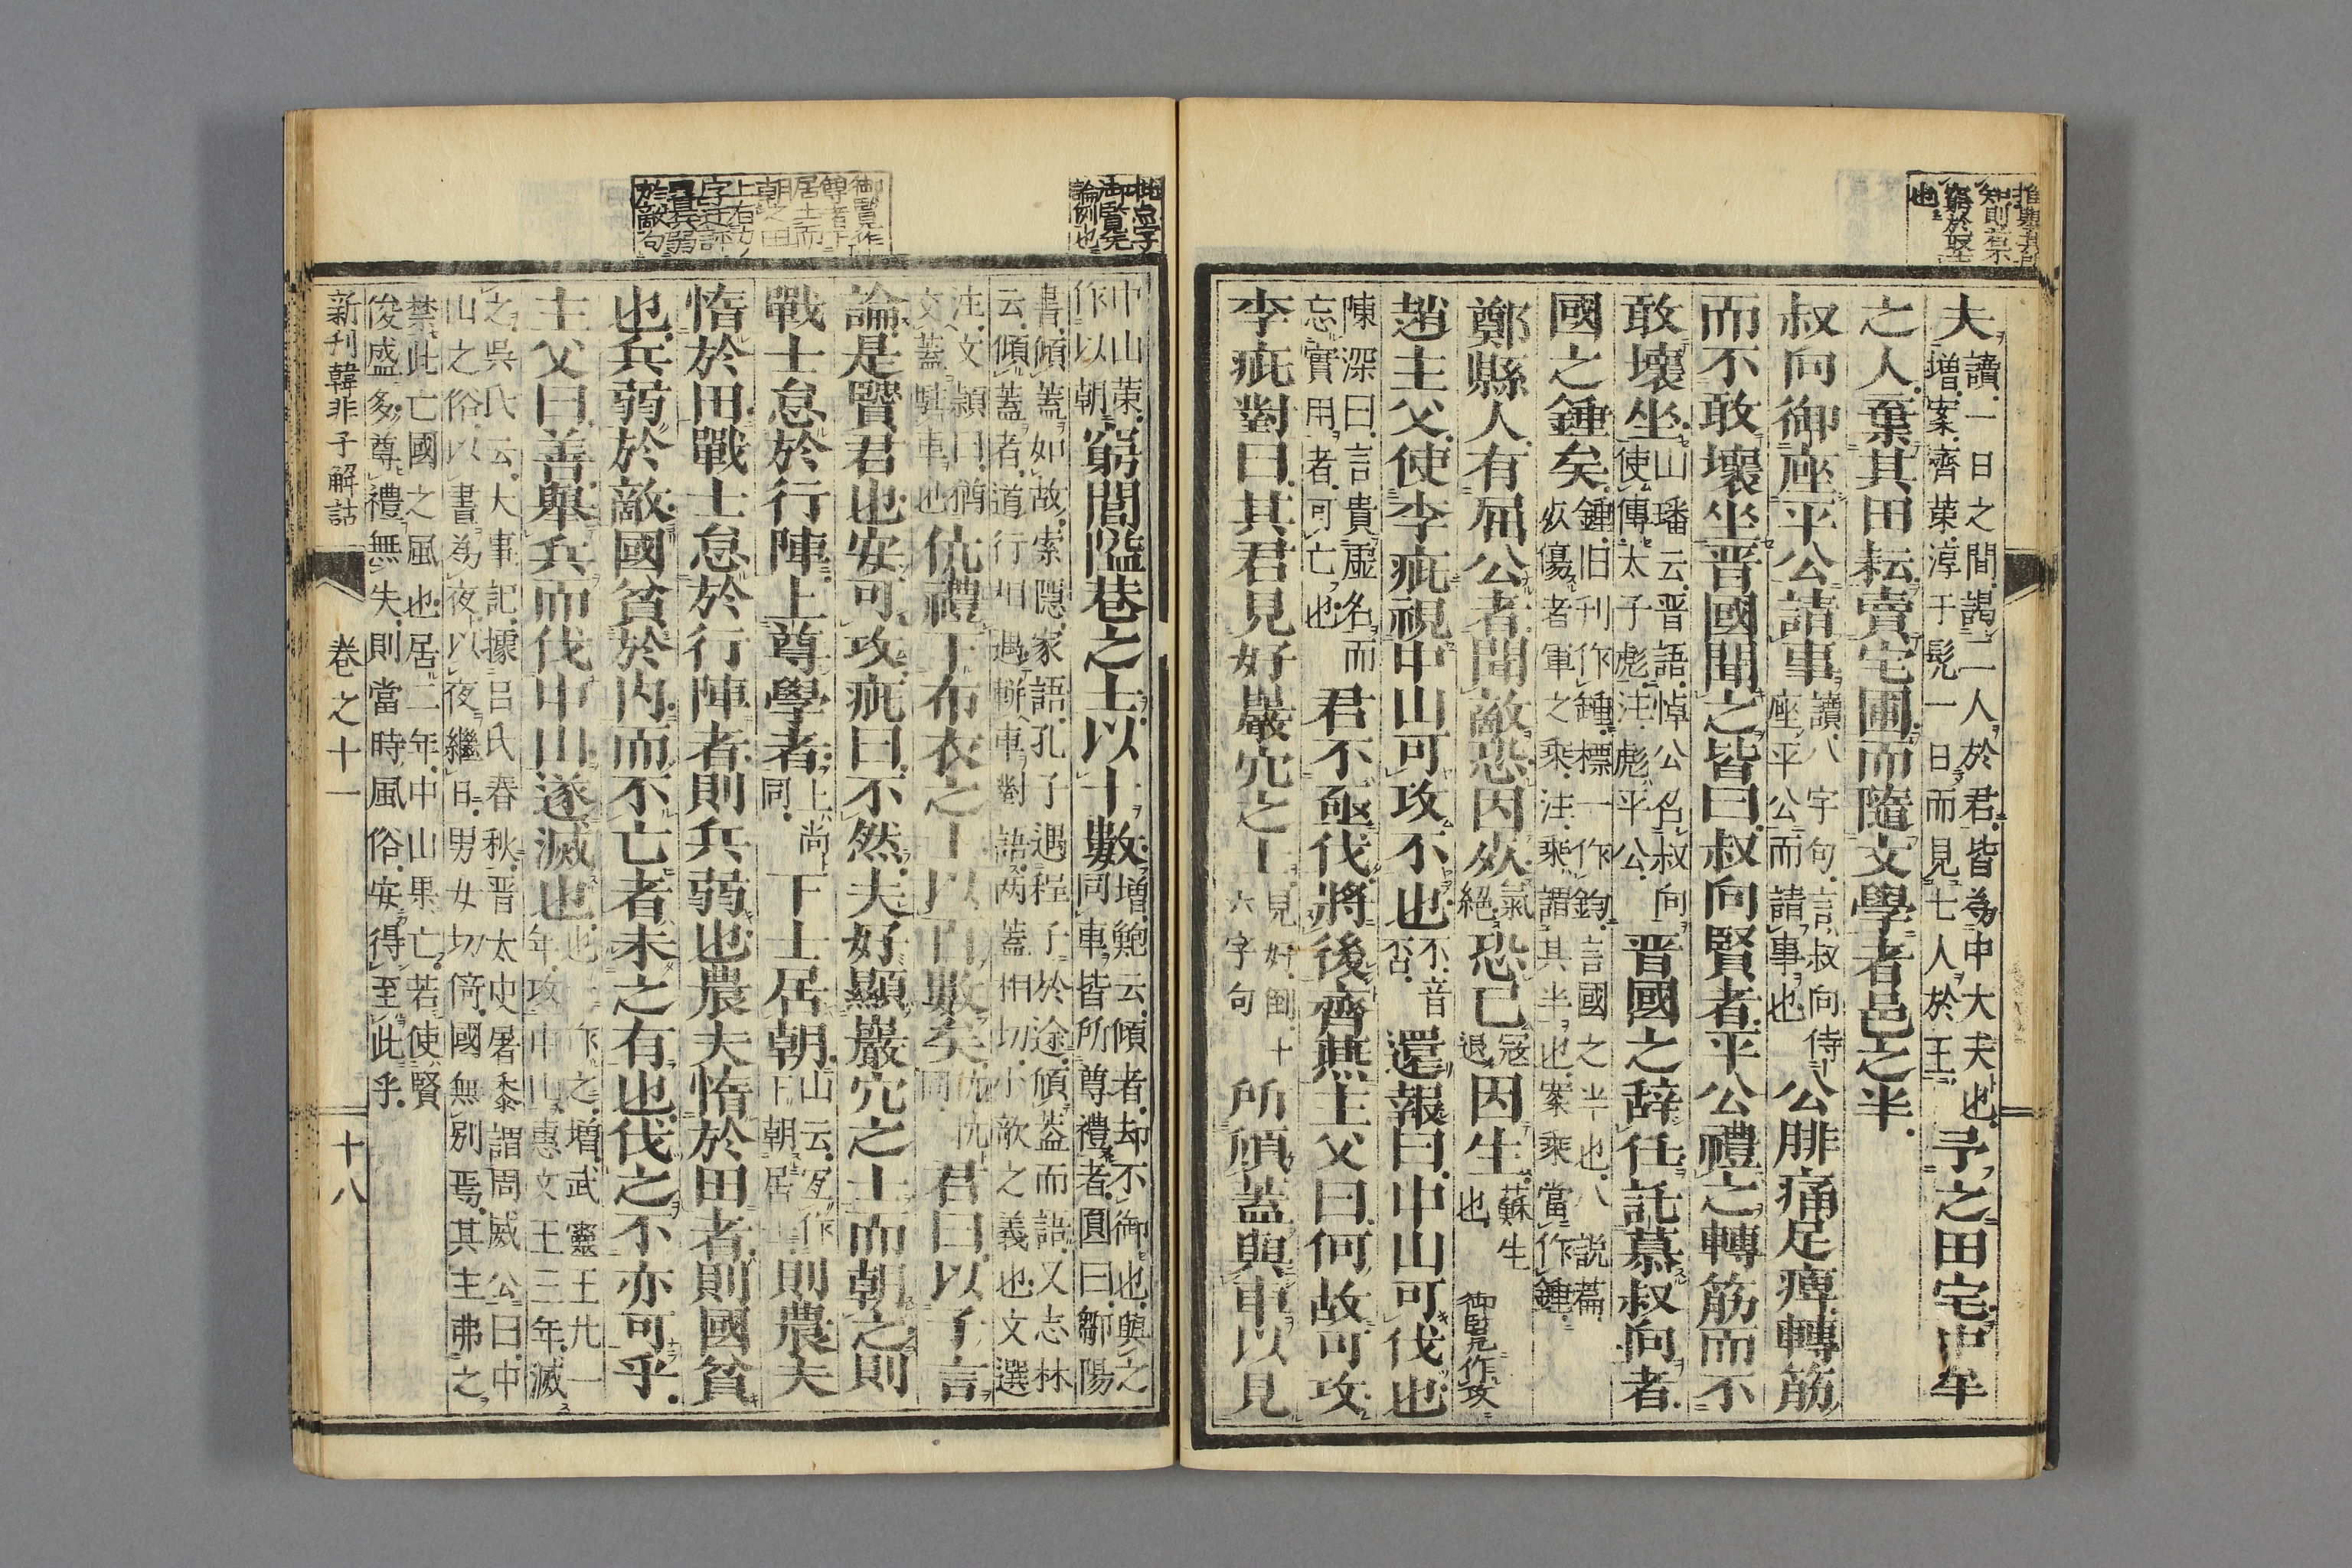 夫讀一日之間謁二人於君皆為中大夫也予之田宅中牟
增案齊策淳于髡一日而見七人於王
之人棄其田耘賣宅圃而隨文學者邑之半
叔向御座平公請事讀八字句言叔向侍公腓痛足痺轉筋
座平公而請事也
而不敢壞坐晋國聞之皆曰叔向賢者平公禮之轉筋而不
敢壞坐山璠云晋語悼公名叔向晋國之辞仕託慕叔向者
使傳太子彪注彪平公
國之錘矣錘旧刊作鍾標一作鈞言國之半也八説篇
必傷者軍之乘注乘謂其半也案乘當作錘
鄭縣人有屈公者聞敵恐因死氣絕恐已冦退因生蘇生也御覧作攻
趙主父使李疵視中山可攻不也不音否還報曰中山可伐也
陳深曰言貴虛名而君不亟伐將後齊燕主父曰何故可攻
忘實用者可亡也
李疵對曰其君見好巖穴之士見好倒十六字句所傾蓋與車以見
中山策增鮑云傾者却不御也與之
作以朝窮閭隘巷之士以十數同車皆所尊禮者圓曰鄒陽
書傾蓋如故索隱家語孔子遇程子於途傾蓋而語又志林
云傾蓋者道行相遇軿車對語两蓋相切小欹之義也文選
注文穎曰猶
文蓋駐車也伉禮下布衣之士以百數矣伉抗同君曰以子言
論是賢君也安可攻疵曰不然夫好顯巖穴之士而朝之則
戰士怠於行陣上尊學者上尚同下士居朝山云互作下朝居士則農夫
惰於田戰士怠於行陣者則兵弱也農夫惰於田者則國貧
也兵弱於敵國貧於内而不亡者未之有也伐之不亦可乎
主父曰善舉兵而伐中山遂滅也也作之增武靈王九一
年攻中山惠文王三年滅
之吳氏云大事記據呂氏春秋晋太史屠黍謂周威公曰中
山之俗以晝為夜以夜繼日男女切倚國無別焉其主弗之
禁此亡國之風也居二年中山果亡若使賢
俊盛多尊禮無失則當時風俗安得至此乎
新刊韓非子解詁
卷之十一
十八